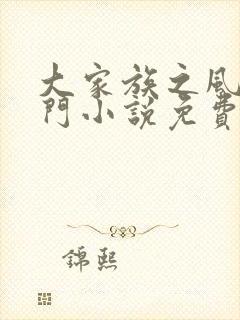 大家族之風
門小說免費
錦熙